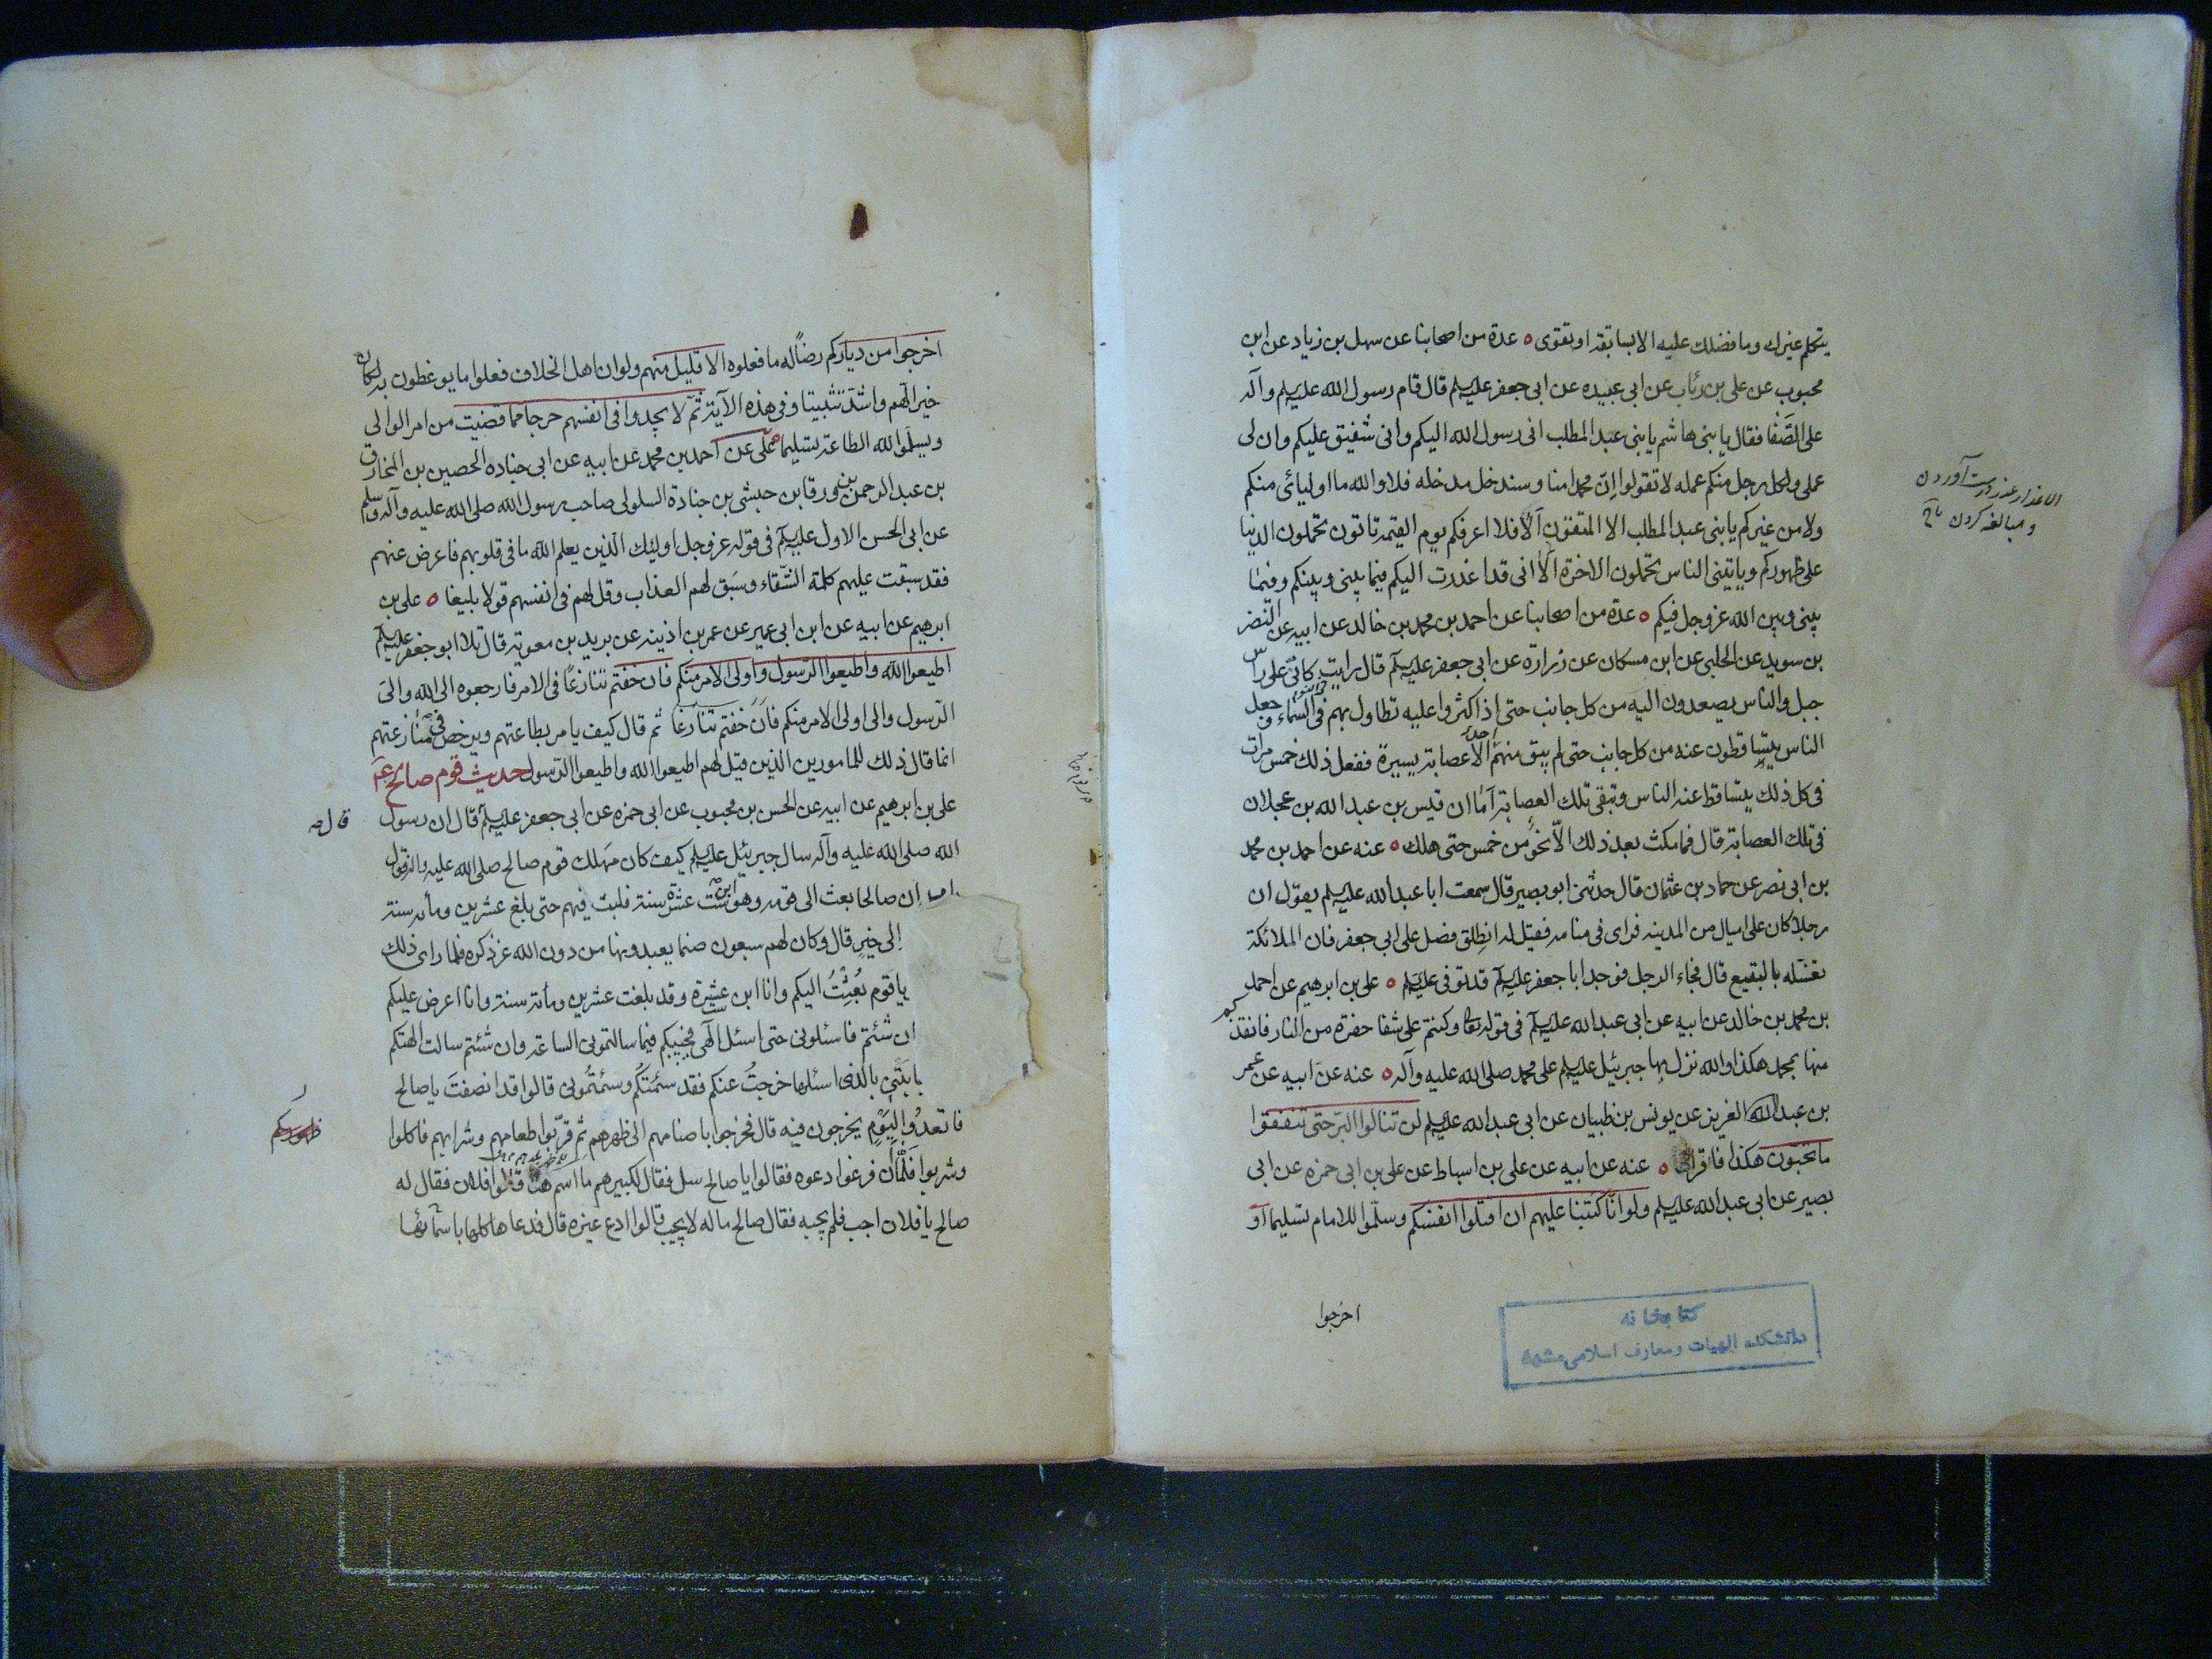 يتكلم غيرك وما فضلك عليه الا بسابقة او بتقوى عدة من اصحابنا عن سهل بن زياد عن ابن
محبوب عن على بن رئاب عن ابى عبيده عن ابى جعفر عليه السلم قال قام رسول الله عليه السلم وآله
على الصَّفا فقال يا بنى هاشم يا بنى عبد المطلب انى رسول الله اليكم وانى شفيق عليكم وان لى
عملى ولكل رجل منكم عمله لا تقولوا إنّ محمدا منا وسندخل مدخله فلا والله ما اوليائى منكم
ولا من غيركم يا بنى عبد المطلب الا المتقون ألا فلا اعرفكم يوم القيمة تاتون تحملون الدنيا
على ظهوركم وياتينى الناس يحملون الاخرة ألا انى قد اعذرت اليكم فيما بينى وبينكم وفيما
بينى وبين الله عز وجل فيكم عدة من اصحابنا عن احمد بن محمد بن خالد عن ابيه عن النضر
بن سويد عن الحلبى عن ابن مسكان عن زرارة عن ابى جعفر عليه السلم قال رايت كانّى على راس
جبل والناس يصعدون اليه من كل جانب حتى اذا كثروا عليه تطاول بهم فى السّماء وجعل
الناس يتساقطون عنه من كل جانب حتى لم يبق منهم احد الا عصابة يسيرة ففعل ذلك خمس مرات
فى كل ذلك يتساقط عنه الناس وتبقى تلك العصابة اما ان قيس بن عبد الله بن عجلان
فى تلك العصابة قال فما مكث بعد ذلك الّا نحوٌ من خمس حتى هلك عنه عن احمد بن محمد
بن ابى نصر عن حماد بن عثمان قال حدثنى ابو بصير قال سمعت ابا عبد الله عليه السلم يقول ان
رجلا كان على اميال من المدينه فراى فى منامه فقيل له انطلق فصل على ابى جعفر فان الملائكة
تغسّله بالبقيع قال فجاء الرجل فوجد ابا جعفر عليه السلم قد توفى عليه السلم على بن ابرهيم عن احمد
بن محمد بن خالد عن ابيه عن ابى عبد الله عليه السلم فى قوله تعالى وكنتم على شفا حفرة من النار فانقذكم
منها بمحمد هكذا والله نزل بها جبرئيل عليه السلم على محمد صلى الله عليه وآله عنه عن ابيه عن عمر
بن عبد العزيز عن يونس بن ظبيان عن ابى عبد الله عليه السلم لن تنالوا البرّ حتى تنفقوا
ما تحبّون هكذا فاقراها عنه عن ابيه عن على بن اسباط عن على بن ابى حمزه عن ابى
بصير عن ابى عبد الله عليه السلم ولو انّا كتبنا عليهم ان اقتلوا انفسكم وسلّموا للامام تسليما او
اخرجوا
الاعذار عذر درست آوردن
و مبالغه كردن تاج
كتابخانه
دانشكده الهيات ومعارف اسلامى مشهد
اخرجوا من دياركم رضاً له ما فعلوه الا قليل منهم ولو ان اهل الخلاف فعلوا ما يوعظون به لكان
خيرا لهم واشدّ تثبيتا وفى هذه الآية ثمّ لا يجدوا فى انفسهم حرجا مما قضيت من امر الوالى
ويسلّموا لله الطاعة تسليما على عن احمد بن محمد عن ابيه عن ابى جناده الحصين بن المخارق
بن عبد الرحمن بن ورقا بن حبشى بن جنادة السلولى صاحب رسول الله صلى الله عليه وآله وسلم
عن ابى الحسن الاول عليه السلم فى قوله عز وجل اوليئك الّذين يعلم الله ما فى قلوبهم فاعرض عنهم
فقد سبقت عليهم كلمة الشّقاء وسَبق لهم العذاب وقل لهم فى انفسهم قولا بليغا على بن
ابرهيم عن ابيه عن ابن ابى عمير عن عمر بن اذينه عن بريد بن معوية قال تلا ابو جعفر عليه السلم
اطيعوا الله واطيعوا الرّسول واولى الامر منكم فان خفتم تنازعًا فى الامر فارجعوه الى الله والى
الرّسول والى اولى الامر منكم ثم قال كيف يامر بطاعتهم ويرخص فى منازعتهم
انما قال ذلك للمامورين الذين قيل لهم اطيعوا الله واطيعوا الرّسول حديث قوم صالح
على بن ابرهيم عن ابيه عن الحسن بن محبوب عن ابى حمزه عن ابى جعفر عليه السلم قال ان رسول
الله صلى الله عليه وآله سال جبرئيل عليه السلم كيف كان مهلك قوم صالح صلى الله عليه
ان صالحا بعث الى قومه وهو ابن ست عشرة سنة فلبث فيهم حتى بلغ عشرين ومأته سنة
إلى خير قال وكان لهم سبعون صنما يعبدونها من دون الله عز ذكره فلما راى ذلك
يا قوم بُعِثتُ اليكم وانا ابن ست عشرة وقد بلغت عشرين ومأته سنة وانا اعرض عليكم
ان شئتم فاسئلونى حتى اسئل الهى فيجيبكم فيما سالتمونى الساعة وان شئتم سالت الهتكم
بالذى اسئلها خرجتُ عنكم فقد سئمتكم وسئمتُمونى قالوا قد انصفتَ يا صالح
فاتعدُوا ليَوْمٍ يخرجون فيه قال فخرجوا باصنامهم الى ظهرهم ثم قرّبوا طعامهم وشرابهم فاكلوا
وشربوا فلمّا ان فرغوا دعوه فقالوا يا صالح سل فقال لكبيرهم ما اسم هذا قالوا فلان فقال له
صالح يا فلان اجب فلم يجبه فقال صالح ما له لا يجيب قالوا ادع غيره قال فدعاها كلها باسمائها
ظهوركم